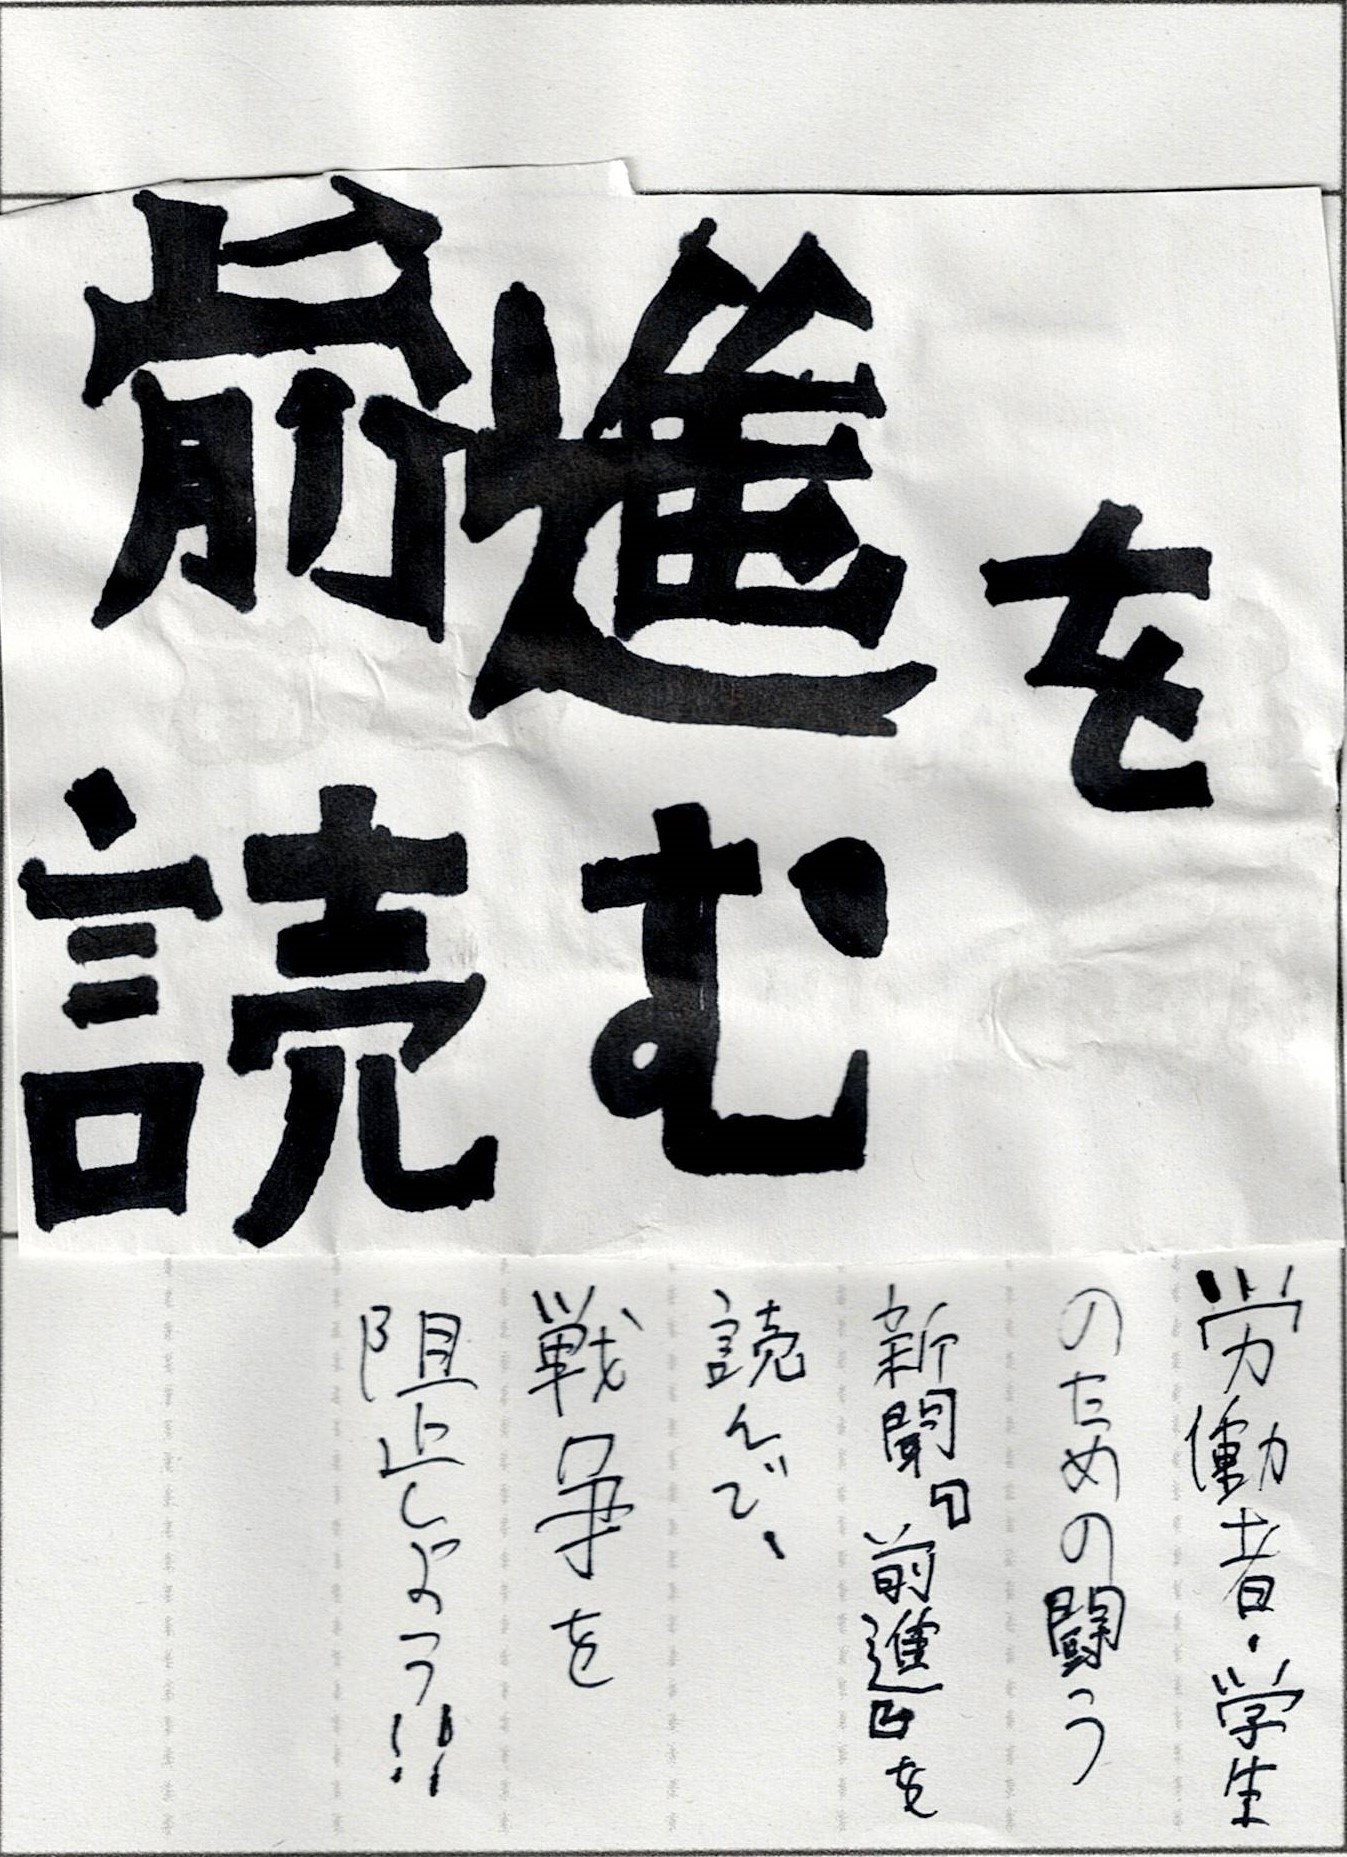 前進を
読む
労働者・学生
のための闘う
新聞『前進』を
読んで、
戦争を
阻止しよう!!